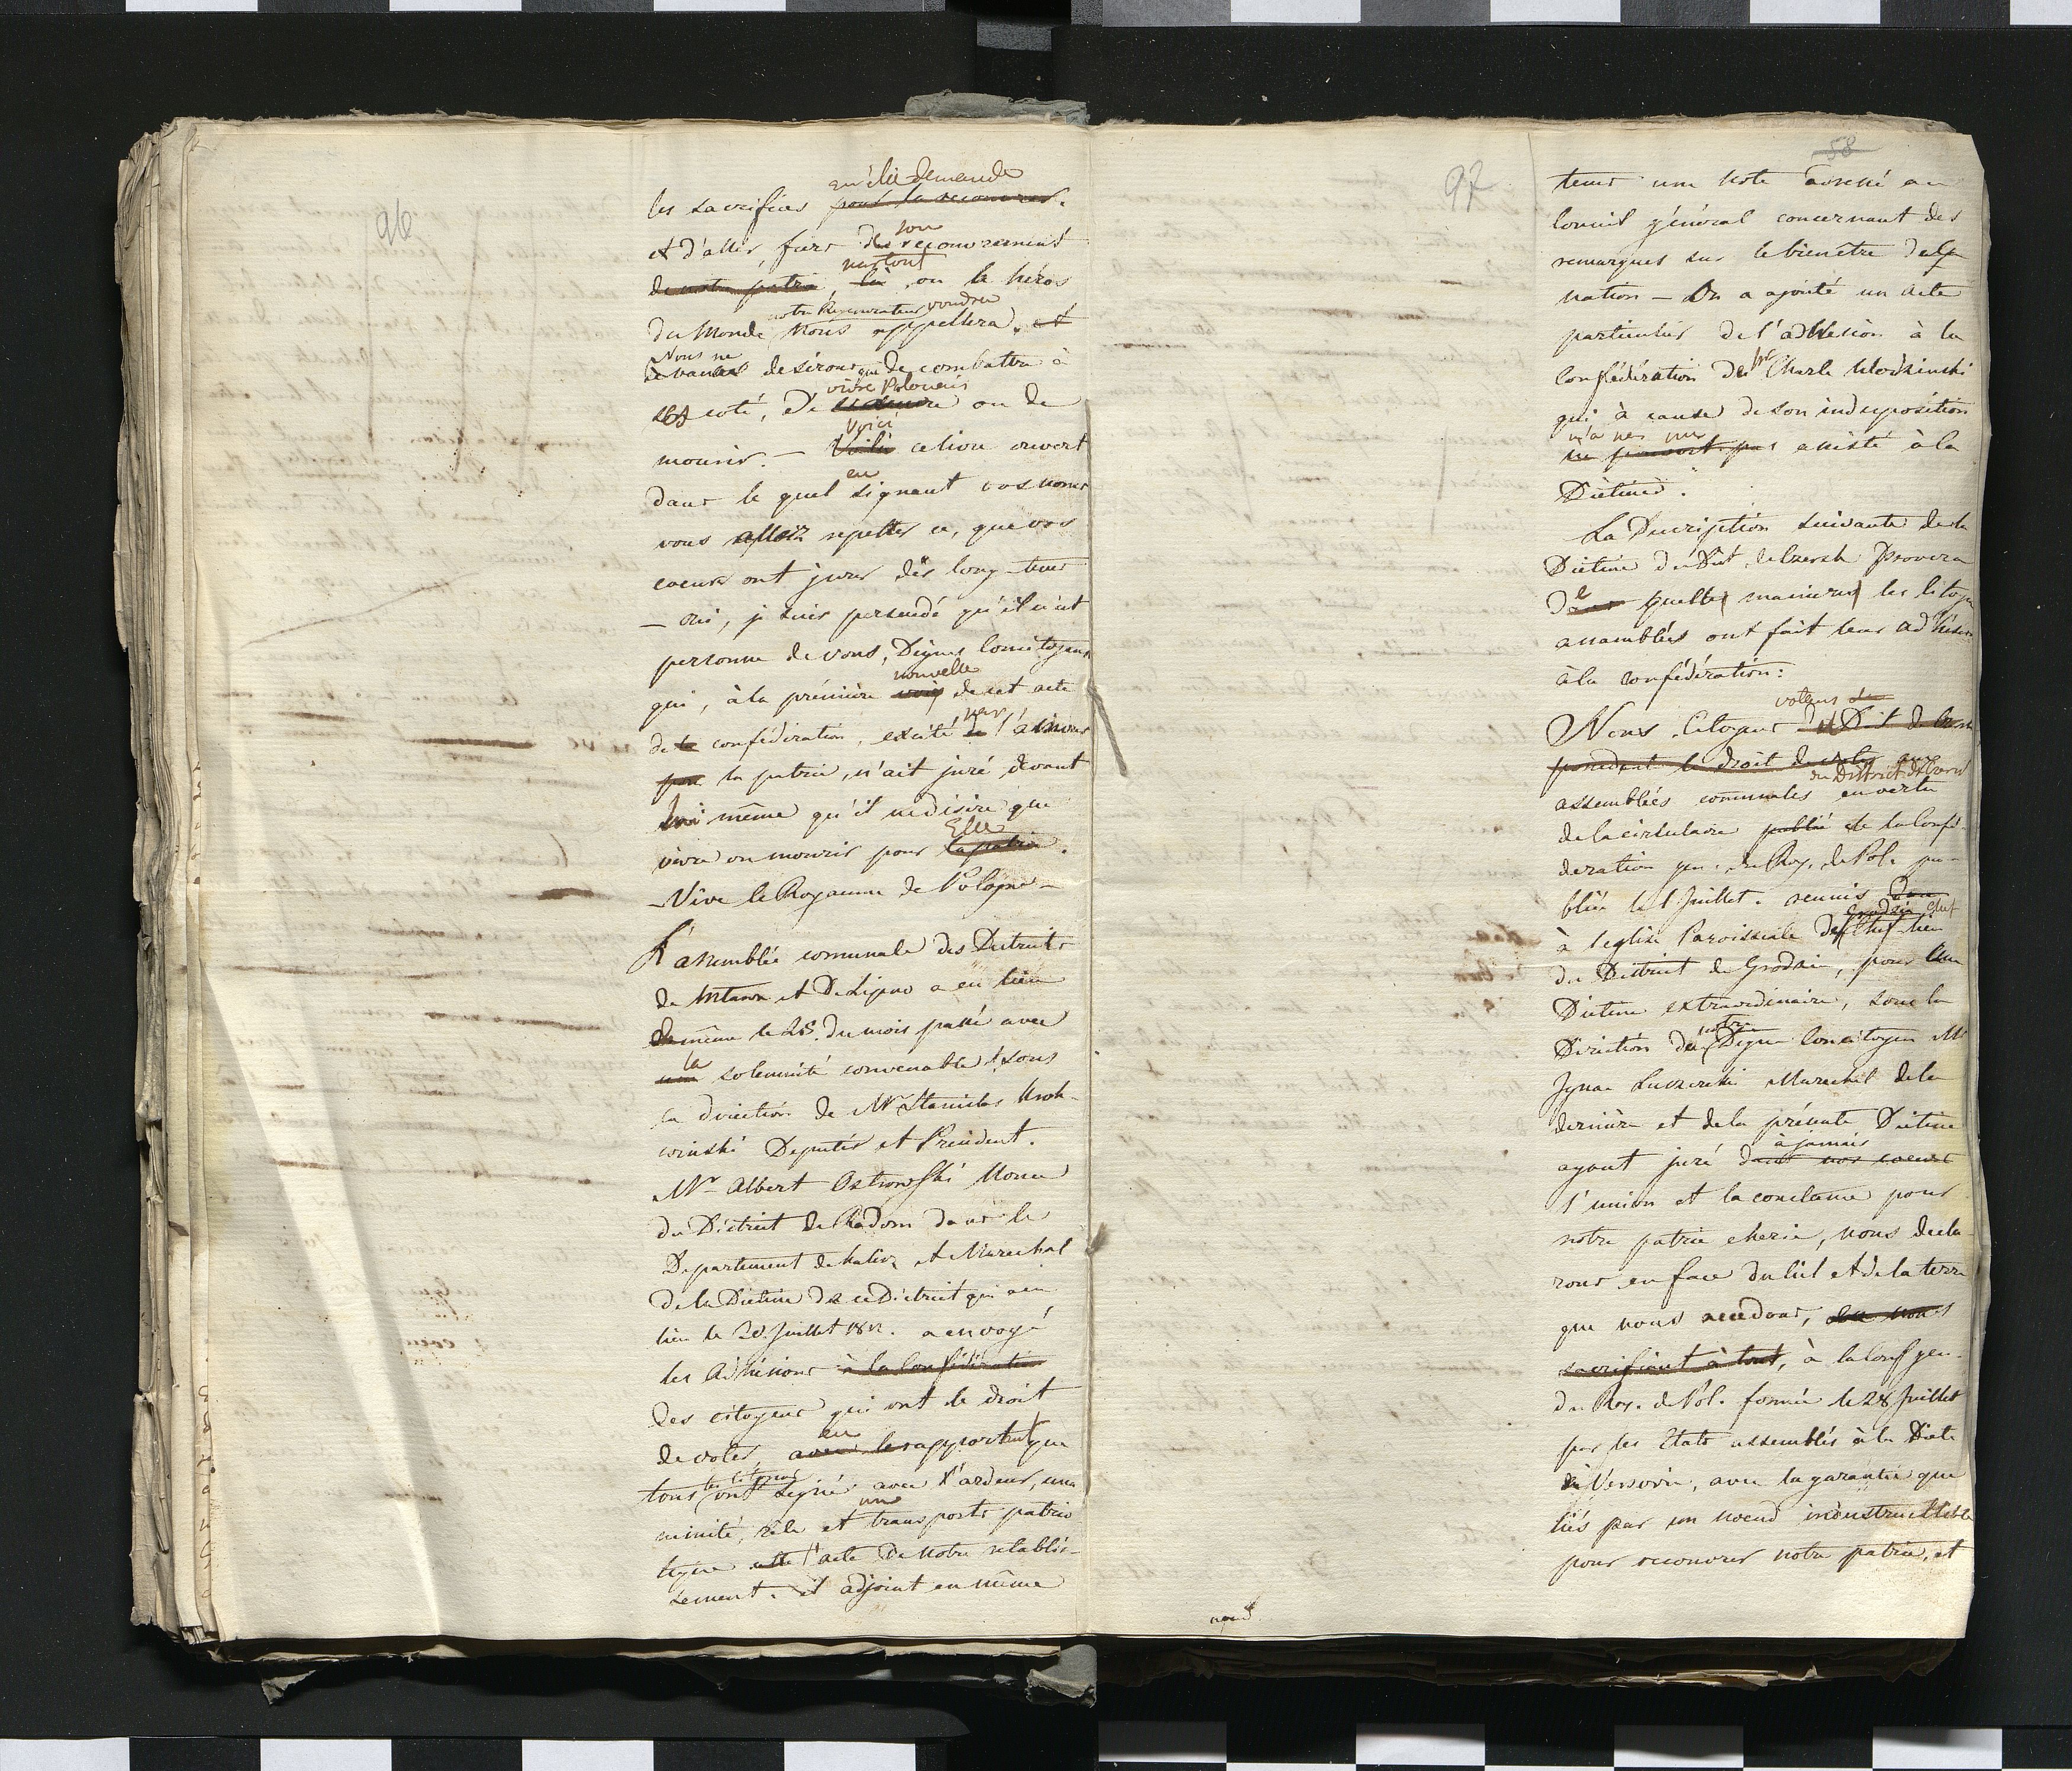 96
qu'elle demande
les sacrifices pour la recouvrer.
son
et d'aller, fiers de recouvrement
partout
de notre patrie, là, ou le héros
notre Régénérateur voudra
du Monde nous appellera. et
Nous ne
desirons que de combattre à
vivre Polonais
ses coté, de ou de
Voici
mourir. — Voilà ce livre ouvert
en
dans le quel signant vos noms
vous allez repetter ce, que vos
coeurs ont juré dès long-tems
— oui, je suis persuadé qu'il n'est
personne de vous, Dignes Concitoyens
nouvelle
qui, à la prémière voix de cet acte
par
de la confédération, excité de l'amour
par la patrie, n'ait juré devant
lui même qu'il ne désire que
Elle
vivre ou mourir pour la patrie.
— Vive le Royaume de Pologne —
L'assemblée communale des Districts
de Mlawa et de Lipno a eu lieu
de même le 28. du mois passé avec
la
une solemnité convenable, sous
la direction de Mr. Stanislas
Deputés et President.
Mr. Albert Ostrowski Nonce
du District de Radom dans le
Departement de Kalisz et Marechal
de la Diétine de ce District qui a eu
lieu le 20. Juillet 1812. a envoyé
les Adhésions à la Confédération
des citoyens qui ont le droit
en
de voter, avec le rapportant que
les Citoyens
tous ont signé avec l'ardeur, una
un
nimité, zèle et transports patrio
tique cette l'acte de notre rétablis-
sement. il adjoint en même
97
58
tems une Note adressé au
Conseil général concernant des
remarques sur le bienêtre de la
nation — On a ajouté un acte
particulier de l'adhésion à la
Confédération de Mr Charle Wodzinski
qui à cause de son indisposition
n'a pas pu
ne pouvoit pas assisté à la
Diétine.
La Description suivante de la
Diétine du Dist. de Czersk Prouvera
de quelle manière les Citoye
assemblés ont fait leur adhésion
à la confédération:
votans de
Nous Citoyens du Dist. de Czersk
possedant le droit de voter
du District de Czersk
assemblées communales en vertu
de la cirkulaire publié de la Confé-
deration gen. du Roy. de Pol. pu-
bliée le 1 Juillet. reunis dans
à l'eglise Paroissiale de Chef-lieu
du District de Grodzin, pour une
Diétine extraordinaire, sous la
notre
Direction de Digne Concitoyen Mr
Ignace Marechal de la
dernière et de la présente Diétine
à jamais
ayant juré dans nos coeurs
l'union et la constance pour
notre patrie cherie, nous decla
rons en face du Ciel et de la terre
que nous accedons, en nous
sacrifiant à tout, à la Conf gen.
du Roy. de Pol. formée le 28 Juillet
par les Etats assemblés à la Diète
à Varsovie, avec la garantie que
liés par un noeud indestructible
pour recouvrer notre patrie, et
nous